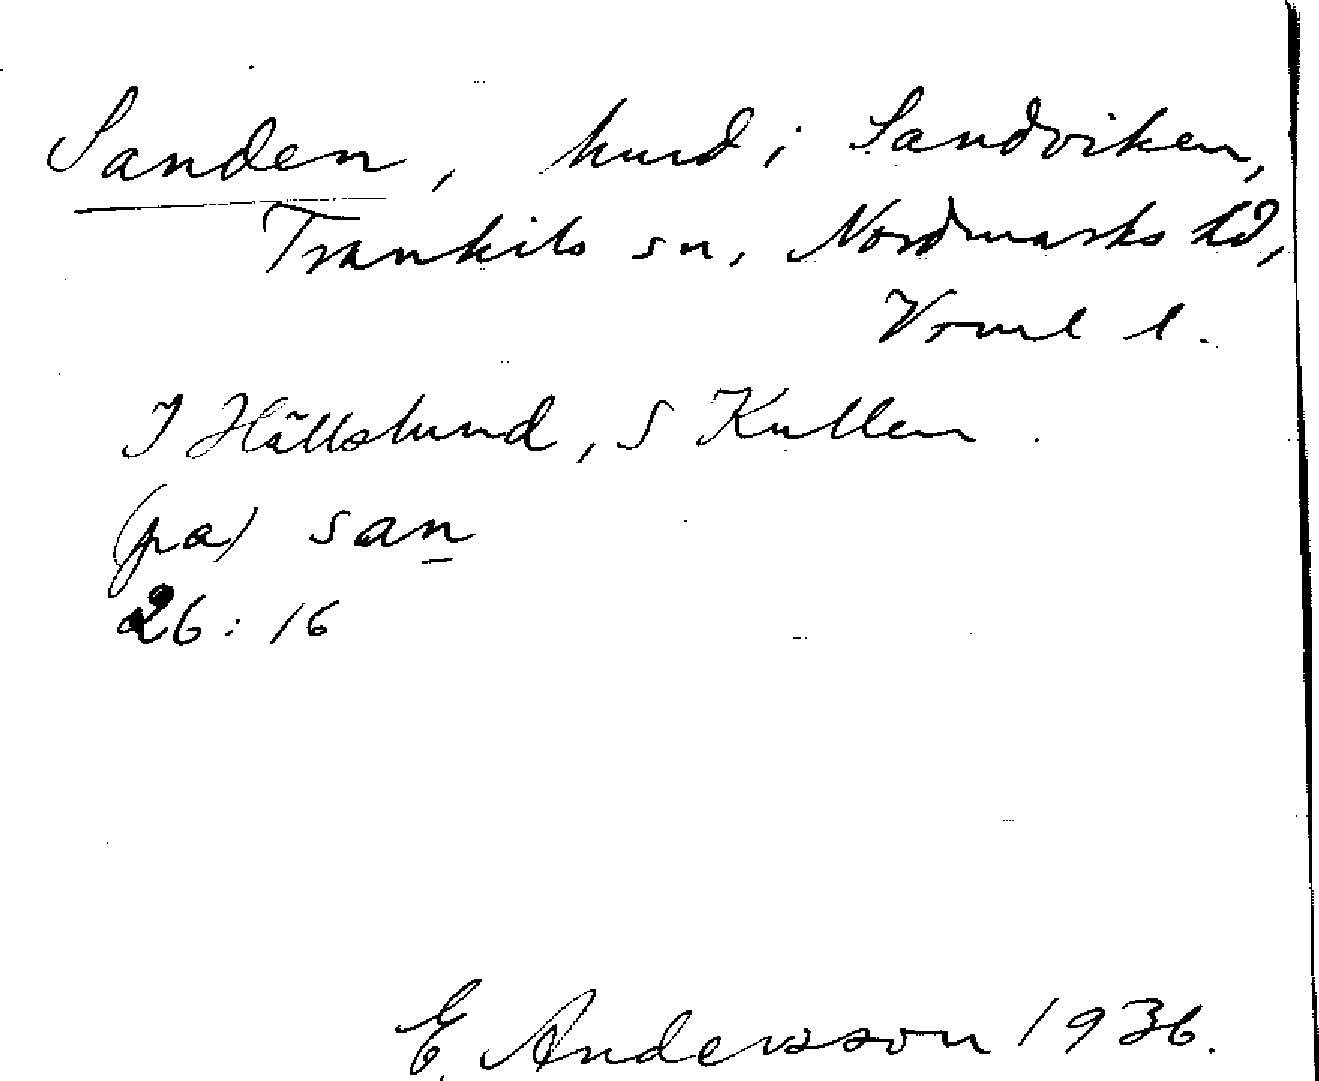 Sanden, hmd i Sandviken,
Trankils sn, Nordmarks hd,
Vrml l.
I Hällslund, S Kullen.
(pa) san
26:16
E. Andersson 1936.